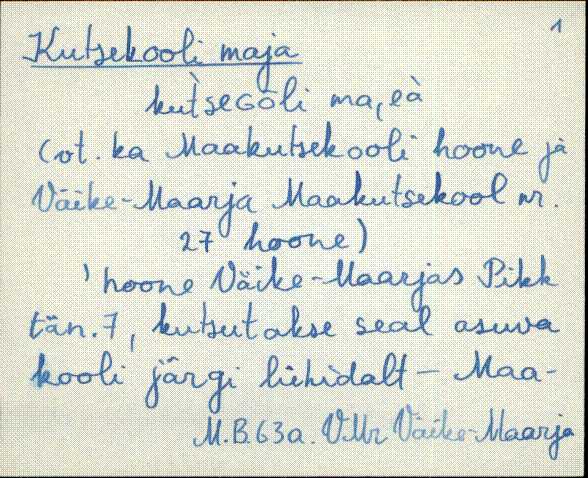 1
Kutsekooli maja
kut̀seGōli ma,eà
(vt. ka Maakutsekooli hoone ja
Väike-Maarja Maakutsekool nr.
27 hoone)
' hoone Väike-Maarjas Pikk
tän. 7, kutsutakse seal asuva
kooli järgi lühidalt – Maa-
M.B.63a. VMr Väike-Maarja